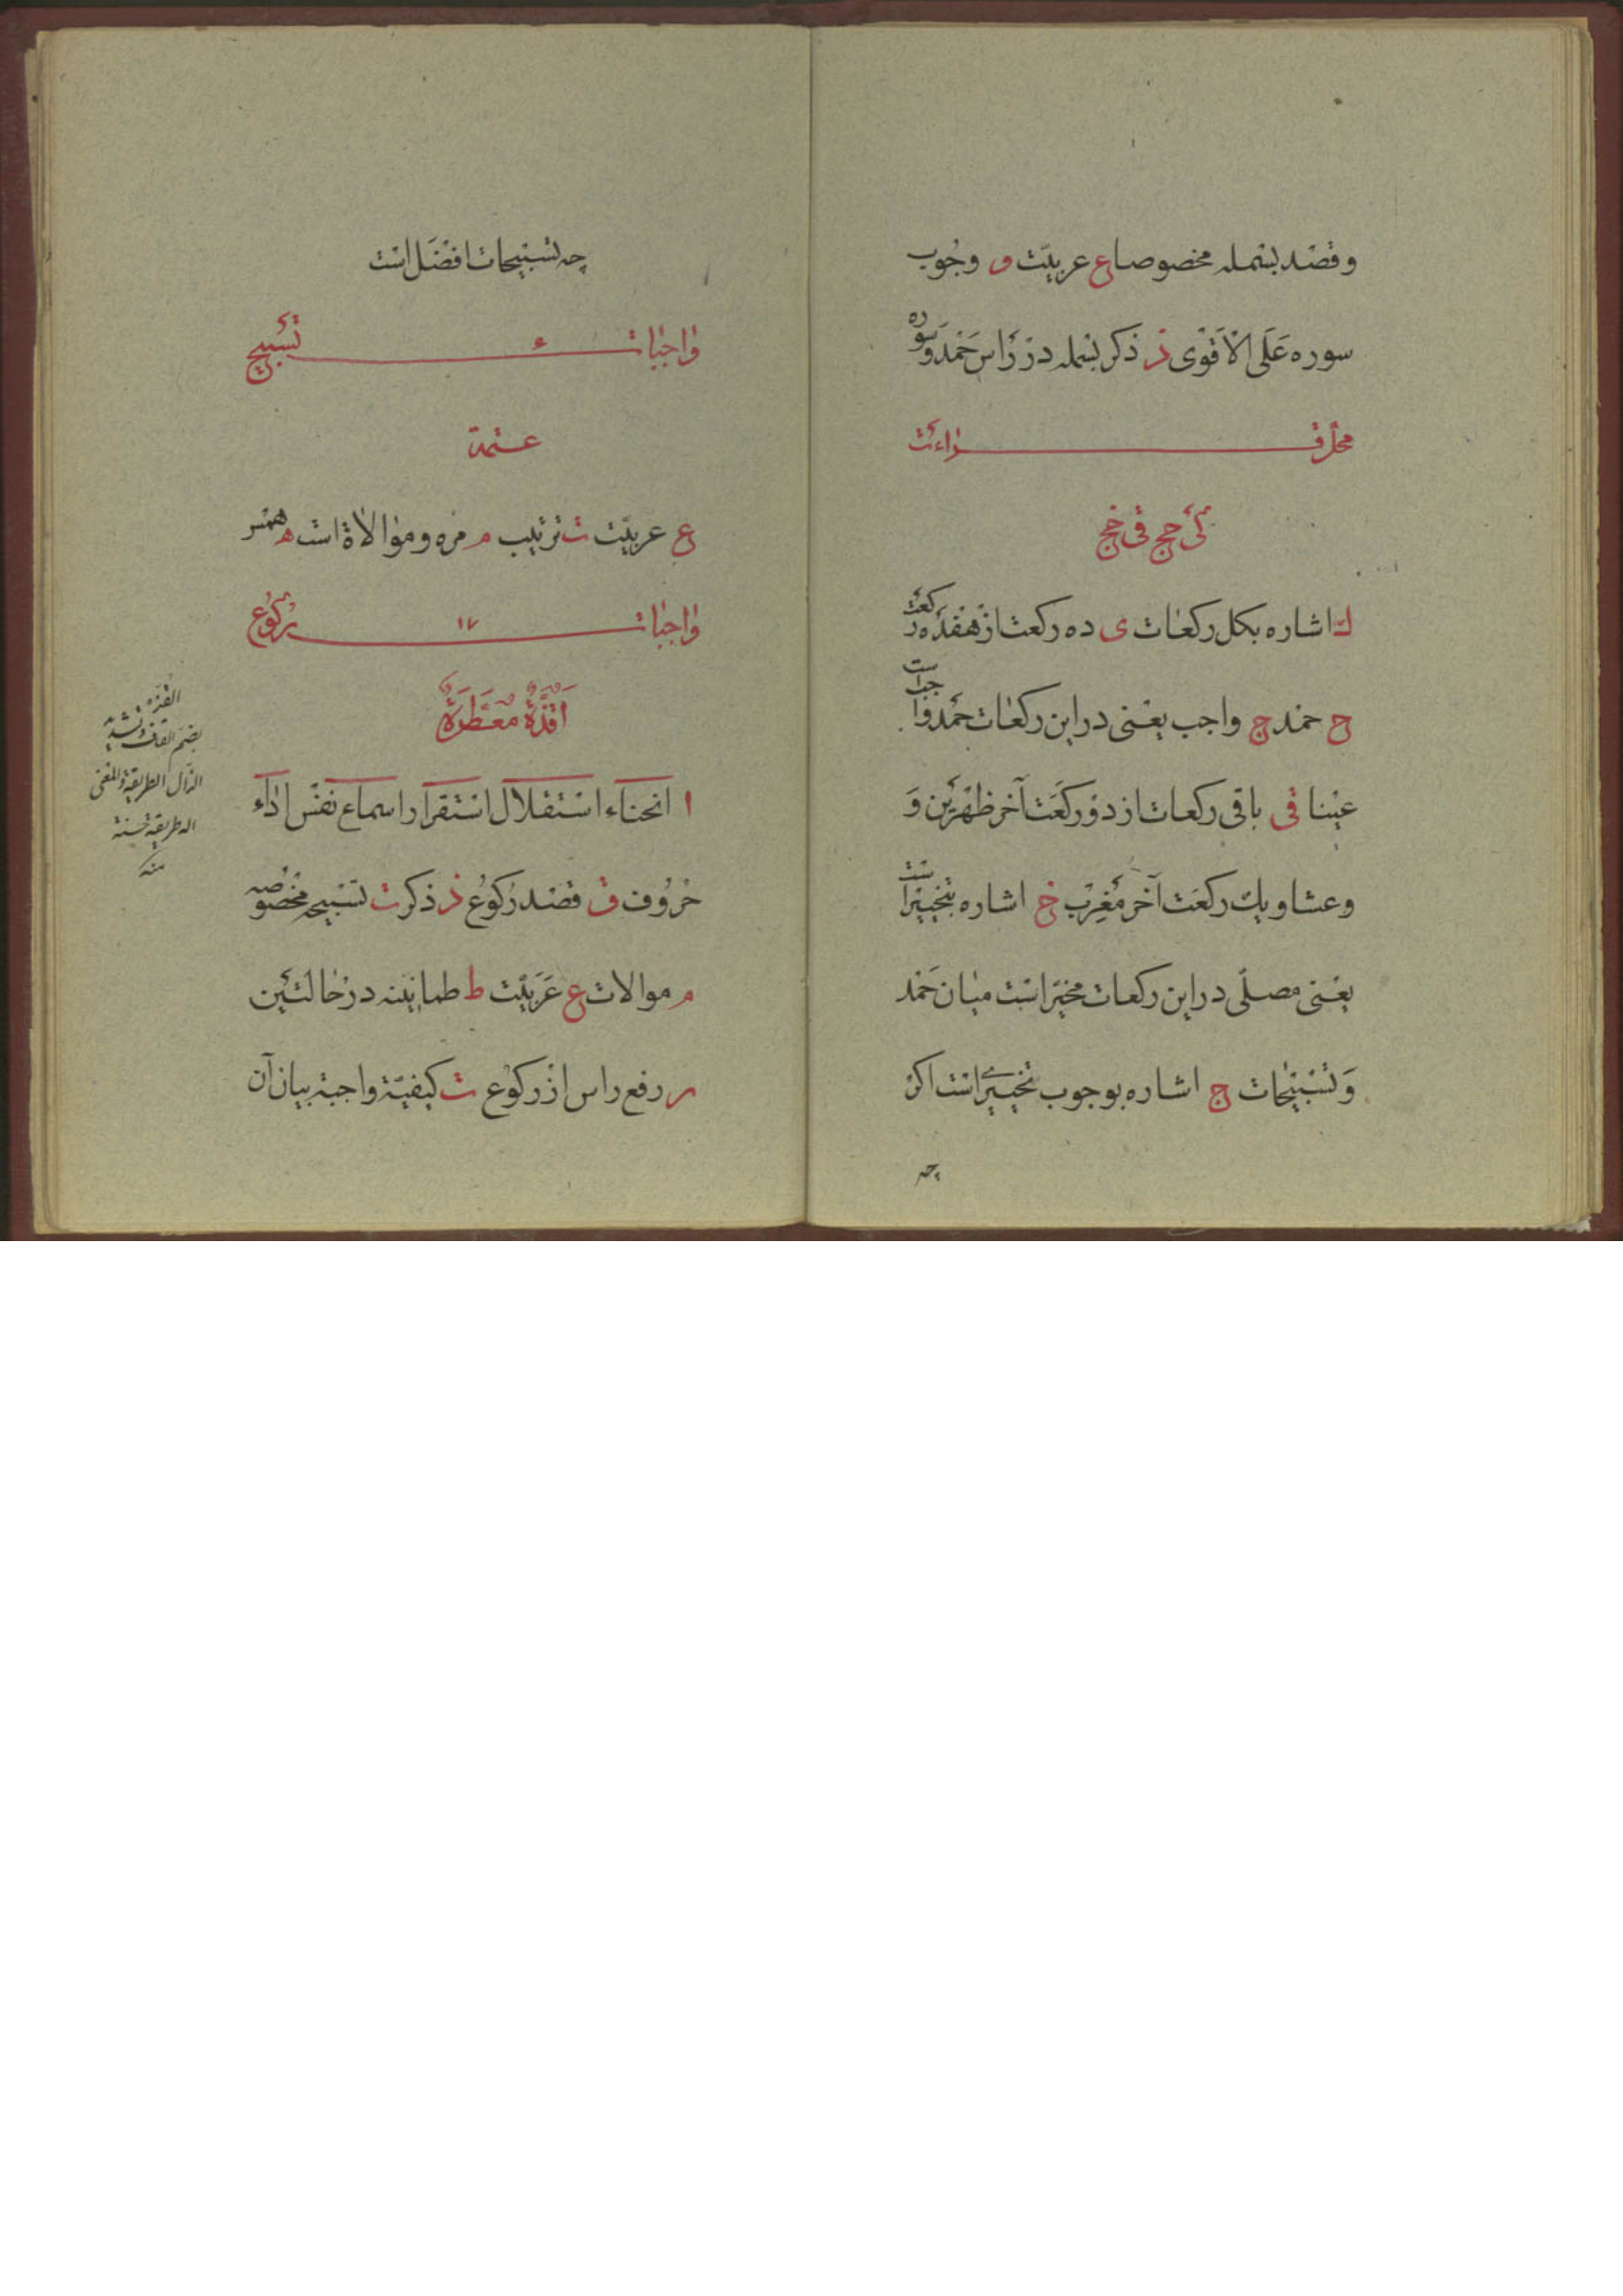 وقصد بسمله مخصوصا ع عربیّت و وجُوب
سوره عَلَی الاَقوی ذ ذکر بسمله در رَأس حَمد وسوره
محل قراءت
کی حج فی خج
ك اشاره بکل رکعات ی ده رکعت از هفده رکعت
ح حمد ج واجب یعنی در این رکعات حمد واجب است
عینا فی باقی رکعات از دو رکعَت آخر ظهرَین وَ
وعشا ویك رکعَت آخر مَغرِب خ اشاره بتخییر است
یعنی مصلّی در این رکعات مخیّر است میان حَمد
وَتسبیحات ج اشاره بوجوب تخییری است اگر
چه
چه تسبیحات افضَل است
واجبات ٤ تسبیح
عتمة
ع عربیّت ت ترتیب م مره وموالاة است ه همس
واجبات ١٧ رکوع
اُقذَّةٌ مُعَطَّرَةٌ
ا انحناء استقلال استقرار اسماع نفس اداء
حرُوف ق قصد رکوُع ذ ذکر ت تسبیح مخصوصه
م موالات ع عَرَبیّت ط طمانینه در حالتَین
ر رفع راس از رکوع ت کیفیّة واجبة بیان آن
القذّة
بضم القاف وتشدید
الذال الطریقة والمعنی
اله طریقة حسنة
منه